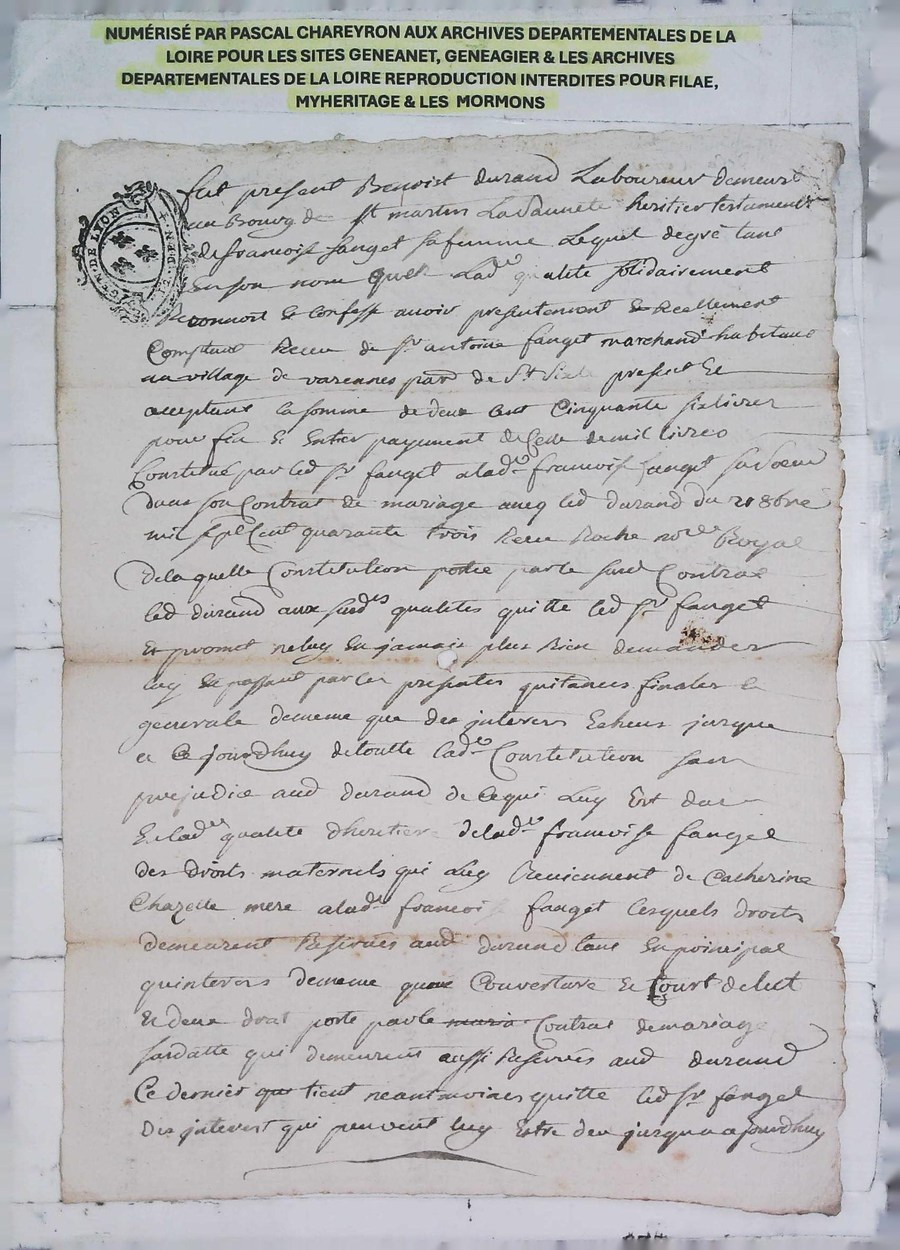 NUMÉRISÉ PAR PASCAL CHAREYRON AUX ARCHIVES DEPARTEMENTALES DE LA
LOIRE POUR LES SITES GENEANET, GENEAGIER & LES ARCHIVES
DEPARTEMENTALES DE LA LOIRE REPRODUCTION INTERDITES POUR FILAE,
MYHERITAGE & LES MORMONS
GEN·DE LION
fut present Benoist durand Laboureur demeurt
au Bourg de St martin Lasauneté heritier testament
de francoise fanget sa femme Lequel de gré tant
En son nom Quen Lade qualité solidairement
Reconnoit Et Confesse avoir presentement Et Reellement
Comptant Receu de Sr antoine fanget marchand habitant
au village de varennes parr de St Sixte present Et
acceptant la somme de deux Cent Cinquante six livres
pour fin Et Entier payement de Celle de mil livres
Constitué par led Sr fanget a lade francoise fanget sa soeur
dans son Contrat de mariage avec led durand du 21 8bre
mil sept Cent quarante trois Receu Roche nore Royal
de laquelle Constitution portée par le susd Contrat
led durand aux susdes qualités quitte led Sr fanget
Et promet ne luy En jamais plus Rien demander
luy En passant par Ces presentes quitances finales Et
generale de meme que des interets Echeus jusques
a Ce jourdhuy de toutte lade Constitution sans
prejudice aud durand de Ce qui Luy Est du
En lade qualité dheritier de lade francoise fanget
des Droits maternels qui Luy Reviennent de Catherine
Chazelle mere a lade francoise fanget lesquels droits
demeurent Reservés aud durand tant En principal
quinterets de meme que Couverture Et Tour de lict
Et deux drat porté par le maria Contrat de mariage
sus datte qui demeurent aussi Reservés aud durand
Ce dernier que tient neantmoins quitte led Sr fanget
des interest qui peuvent luy Estre deu jusqua a jourdhuy